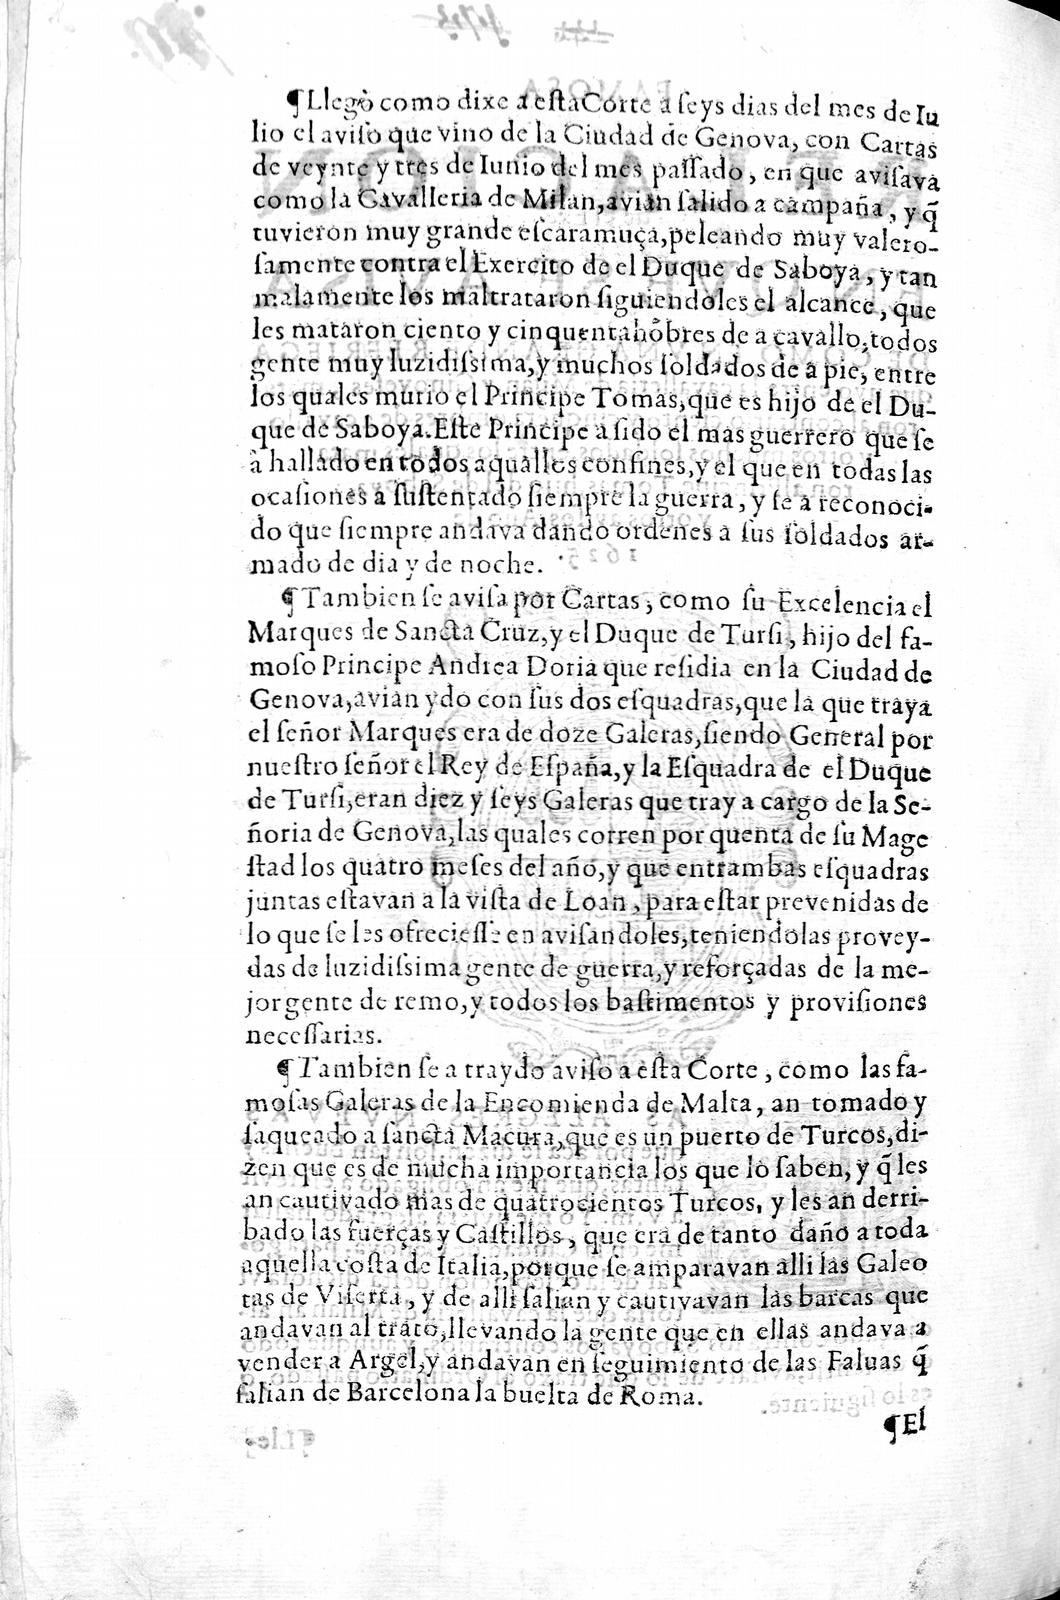 ¶Llegò como dixe a estaCorte a seys dias del mes de Iu
lio el aviso que vino de la Ciudad de Genova, con Cartas
de veynte y tres de Iunio del mes passado, en que avisava
como la Cavalleria de Milan,avian salido a campaña, y q̃
tuvieron muy grande escaramuça,peleando muy valero-
samente contra el Exercito de el Duque de Saboya, y tan
malamente los maltrataron siguiendoles el alcance, que
les mataron ciento y cinquenta hõbres de a cavallo,todos
gente muy luzidissima,y muchos soldados de a pie, entre
los quales murio el Principe Tomas,que es hijo de el Du-
que de Saboya.Este Principe a sido el mas guerrero que se
à hallado en todos aquallos confines,y el que en todas las
ocasiones a sustentado siempre la guerra, y se a reconoci-
do que siempre andava dando ordenes a sus soldados ar-
mado de dia y de noche.
¶Tambien se avisa por Cartas, como su Excelencia el
Marques de Sancta Cruz,y el Duque de Tursi, hijo del fa-
moso Principe Andrea Doria que residia en la Ciudad de
Genova,avian ydo con sus dos esquadras,que la que traya
el señor Marques era de doze Galeras,siendo General por
nuestro señor el Rey de España,y la Esquadra de el Duque
de Tursi,eran diez y seys Galeras que tray a cargo de la Se-
ñoria de Genova,las quales corren por quenta de su Mage
stad los quatro meses del año,y que entrambas esquadras
juntas estavan a la vista de Loan,para estar prevenidas de
lo que se les ofreciesse en avisandoles,teniendolas provey-
das de luzidissima gente de guerra,y reforçadas de la me-
jor gente de remo,y todos los bastimentos y provisiones
necessarias.
¶Tambien se a traydo aviso a esta Corte, como las fa-
mosas Galeras de la Encomienda de Malta, an tomado y
saqueado a sancta Macura,que es un puerto de Turcos,di-
zen que es de mucha importancia los que lo saben, y q̃ les
an cautivado mas de quatrocientos Turcos, y les an derri-
bado las fuerças y Castillos, que era de tanto daño a toda
aquella costa de Italia,porque se amparavan alli las Galeo
tas de Viserta, y de alli salian y cautivavan las barcas que
andavan al trato,llevando la gente que en ellas andava a
vender a Argel,y andavan en seguimiento de las Faluas q̃
salian de Barcelona la buelta de Roma.
¶El